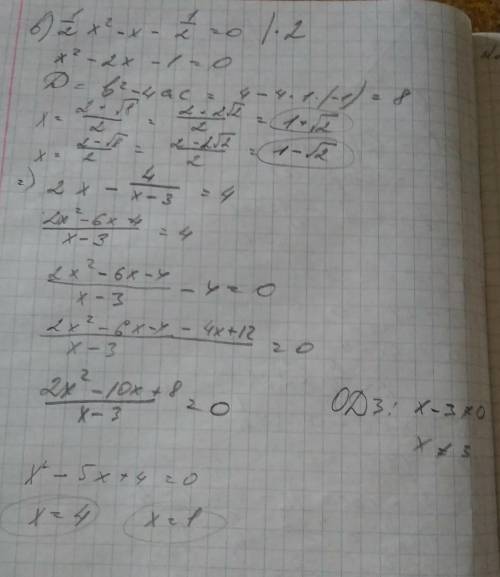 в) 1/2 x² - x - 1/2 = 0 | · 2
x² - 2x - 1 = 0
D = b² - 4ac = 4 - 4 · 1 · (-1) = 8
x = (2 + √8)/2 = (2 + 2√2)/2 = 1+√2
x = (2 - √8)/2 = (2 - 2√2)/2 = 1-√2
г) 2x - 4/(x-3) = 4
(2x² - 6x - 4)/(x-3) = 4
(2x² - 6x - 4)/(x-3) - 4 = 0
(2x² - 6x - 4 - 4x + 12)/(x-3) = 0
(2x² - 10x + 8)/(x-3) = 0
ОДЗ: x - 3 ≠ 0
x ≠ 3
x² - 5x + 4 = 0
x = 4 x = 1